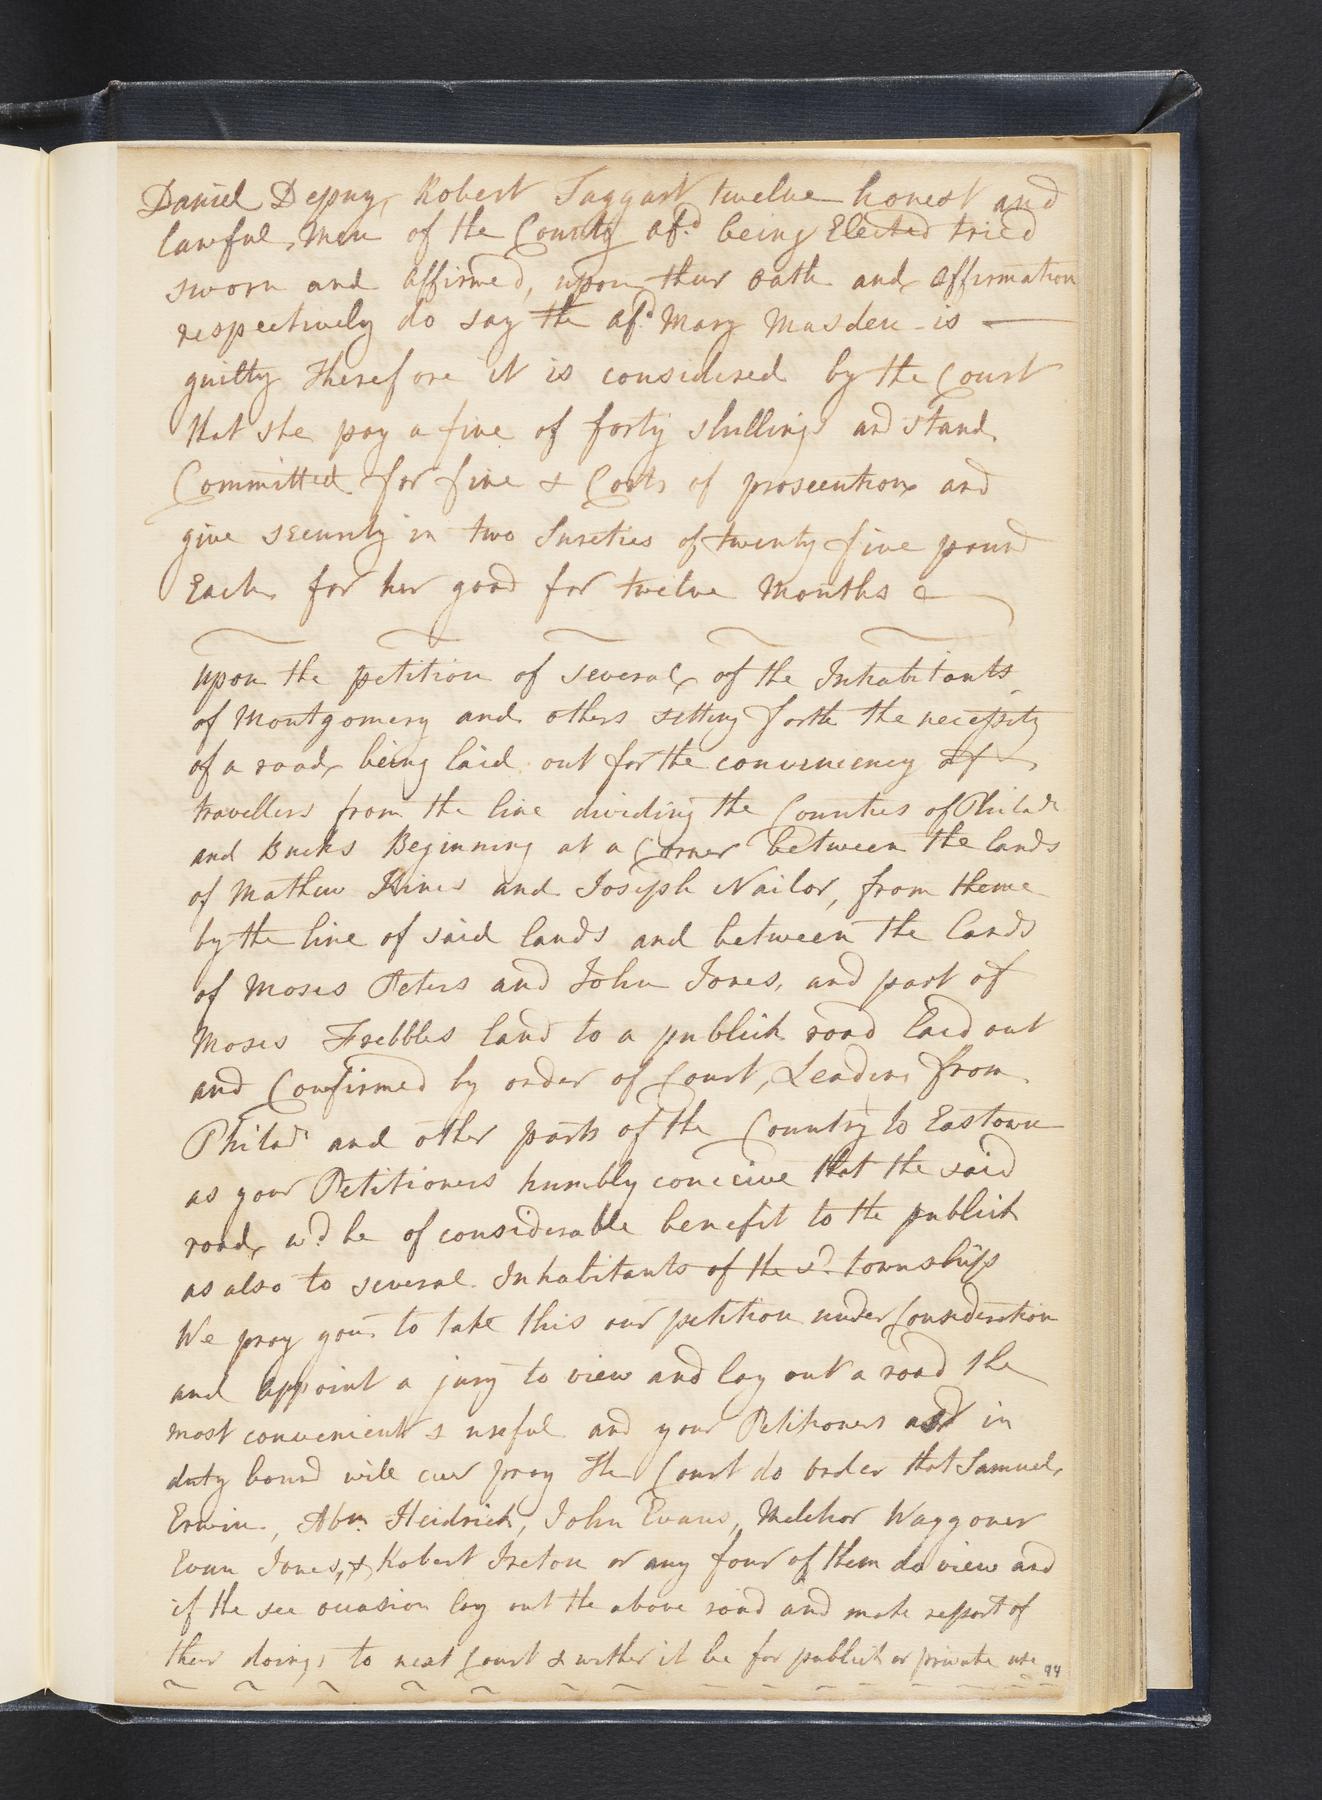 Daniel Depuy, Robert Taggart twelve honest and
lawful, Men of the County afd. being Elected tried
sworn and affirmed, upon thur oath and affirmation
respectively do say the afd. Mary Masden is —
guilty Therefore it is considered by the Court
that she pay a fine of forty shillings and stand
Committed for fine & Costs of prosecution and
give security in two Sureties of twenty five pound
Each for her good for twelve Months
upon the petition of several of the Inhabitants
of Montgomery and others setting forth the necessity
of a road being laid out for the conveniency of
travellers from the line dividing the Counties of Philada
and Bucks Beginning at a Corner between the lands
of Mathew Hines and Joseph Nailor, from thence
by the line of said lands and between the lands
of Moses Peters and John Jones, and part of
Moses Frebbles land to a publick road laid out
and Confirmed by order of Court, Leading from
Philada and other parts of the Country to Eastown
as your Petitioners humbly conceive that the said
road, wd. be of considerable benefit to the publick
as also to several Inhabitants of the sd. townships
We pray you to take this our petition under Consideration
and appoint a jury to view and lay out a road the
most convenient & useful and your Petitioners as in
duty bound will ever pray The Court do order that Samuel
Erwin, Abm. Heidrick, John Evans, Melchor Waggoner
Evan Jones, & Robert Ireton or any four of them do view and
if the see occasion lay out the above road and make report of
their doings to next Court & wether it be for publick or private use
94